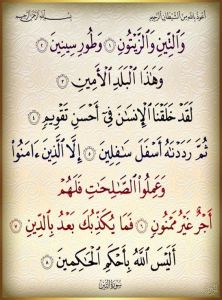 أعوذ بالله من الشيطان الرجيم
بسم الله الرحمن الرحيم
وَالتِّينِ وَالزَّيْتُونِ ١ وَطُورِ سِينِينَ ٢
وَهَٰذَا الْبَلَدِ الْأَمِينِ ٣
لَقَدْ خَلَقْنَا الْإِنسَٰنَ فِي أَحْسَنِ تَقْوِيمٍ ٤
ثُمَّ رَدَدْنَٰهُ أَسْفَلَ سَٰفِلِينَ ٥ إِلَّا الَّذِينَ ءَامَنُوا
وَعَمِلُوا الصَّٰلِحَٰتِ فَلَهُمْ
أَجْرٌ غَيْرُ مَمْنُونٍ ٦ فَمَا يُكَذِّبُكَ بَعْدُ بِالدِّينِ ٧
أَلَيْسَ اللَّهُ بِأَحْكَمِ الْحَٰكِمِينَ ٨
سورة التين